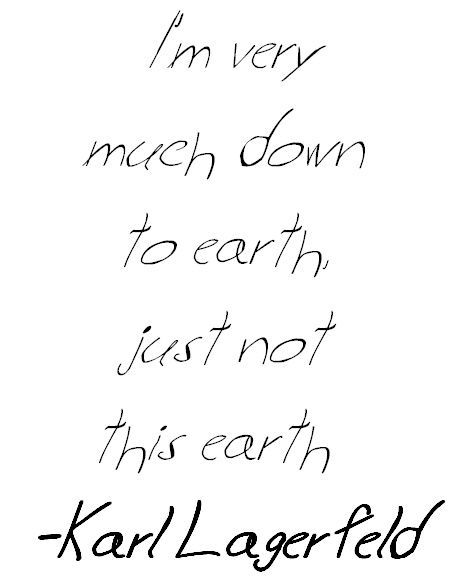 I'm very
much down
to earth,
just not
this earth
-Karl Lagerfeld